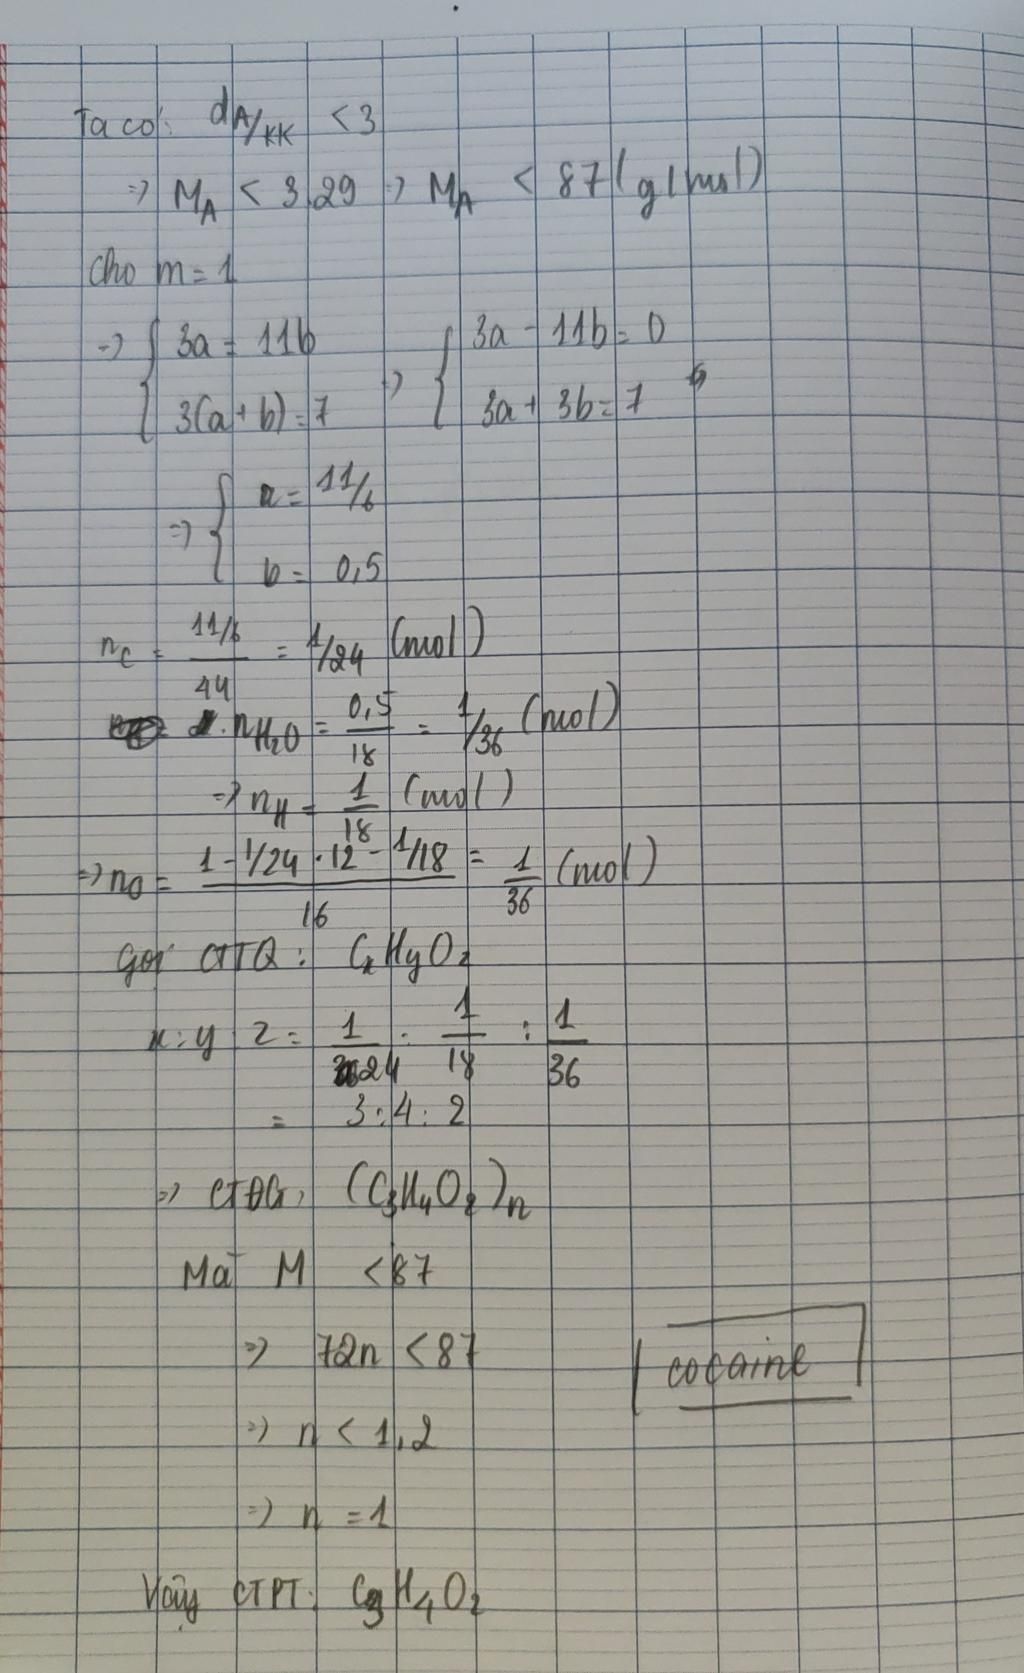 Ta có: dA/KK < 3
=> MA < 3.29 => MA < 87 (g/mol)
Cho m = 1
=> { 3a = 11b => { 3a - 11b = 0
3(a + b) = 7 3a + 3b = 7
=> { a = 11/6
b = 0,5
nC = 11/6 / 44 = 1/24 (mol)
nH2O = 0,5/18 = 1/36 (mol)
=> nH = 1/18 (mol)
=> nO = (1 - 1/24 . 12 - 1/18) / 16 = 1/36 (mol)
Gọi CTTQ: CxHyOz
x : y : z = 1/24 : 1/18 : 1/36
= 3 : 4 : 2
=> CTĐG: (C3H4O2)n
Mà M < 87
=> 72n < 87
cocaine
=> n < 1,2
=> n = 1
Vậy CTPT: C3H4O2